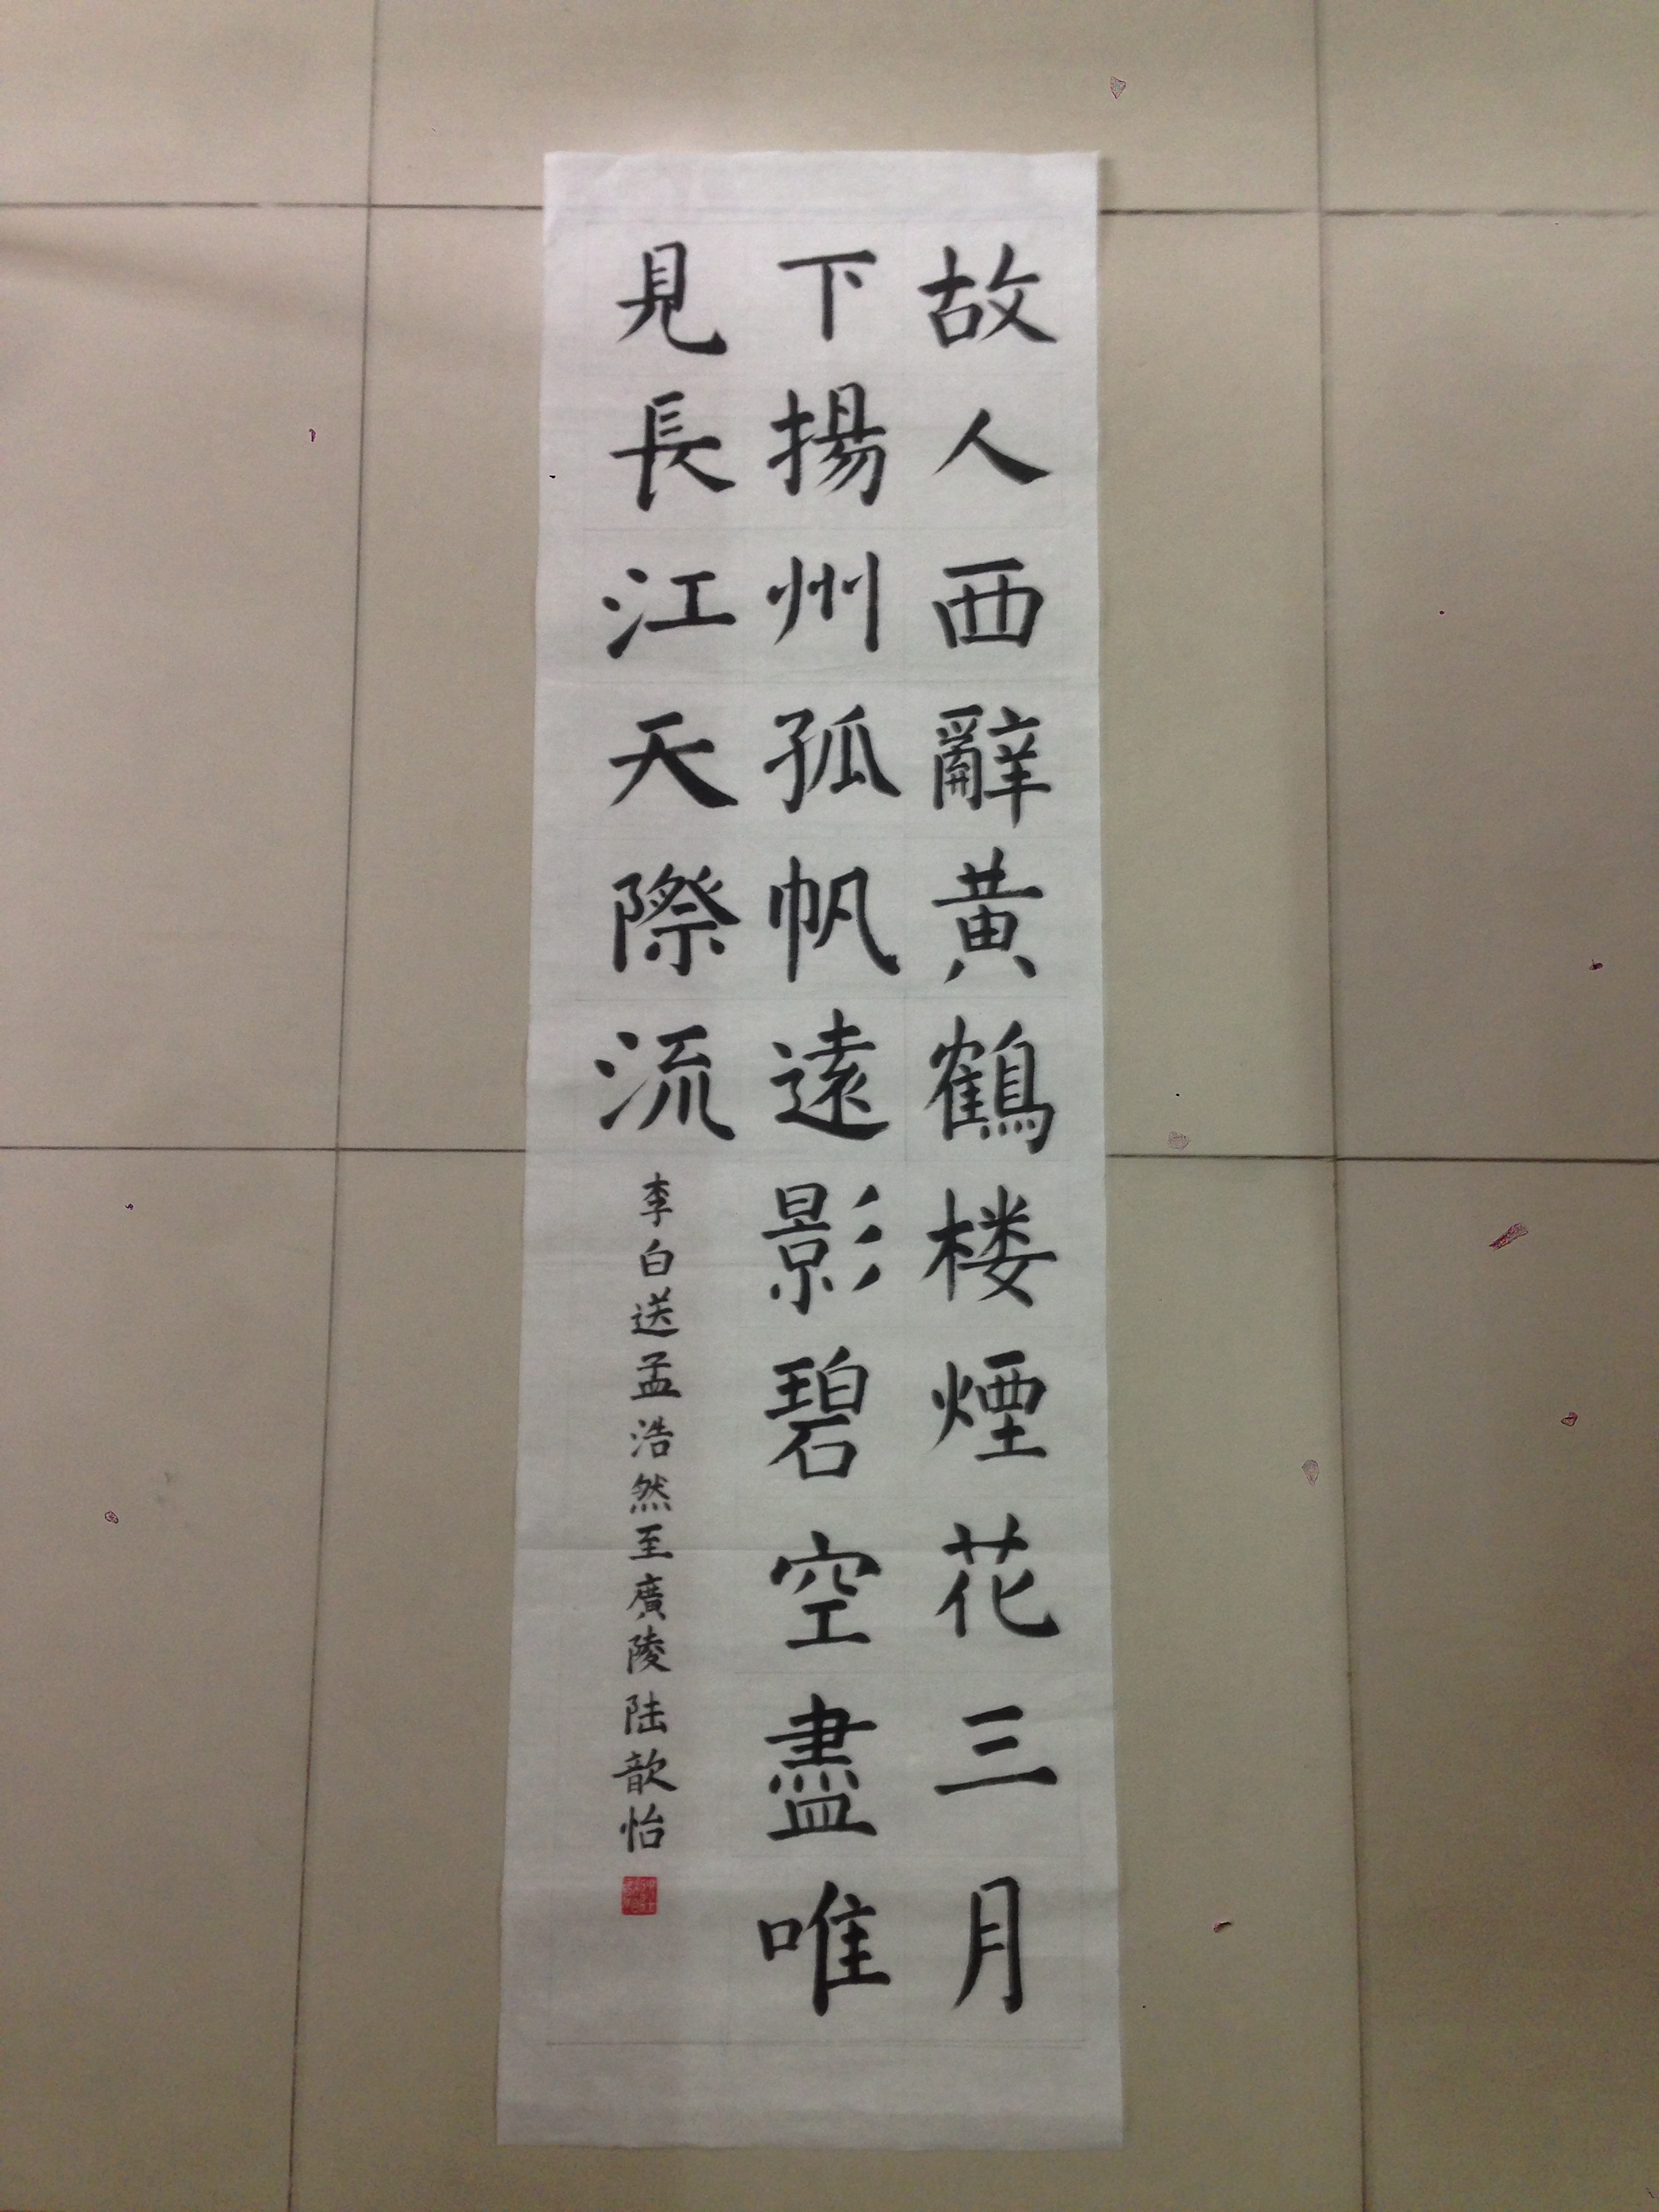 故人西辭黄鶴楼煙花三月
下揚州孤帆遠影碧空盡唯
見長江天際流
李白送孟浩然至廣陵陆歆怡